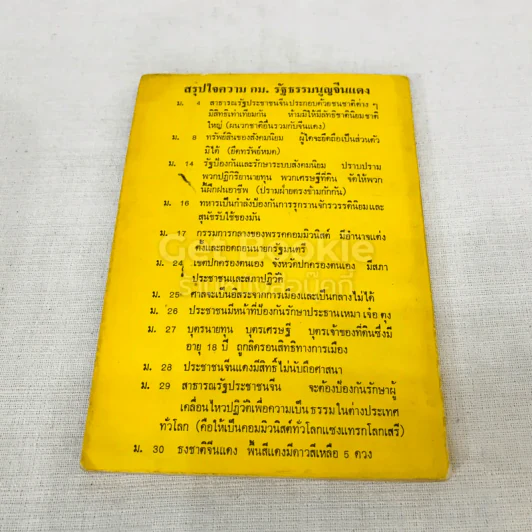 สรุปใจความ กม. รัฐธรรมนูญจีนแดง
ม. 4 สาธารณรัฐประชาชนจีนประกอบด้วยชนชาติต่าง ๆ
มีสิทธิเท่าเทียมกัน ห้ามมิให้มีลัทธิชาตินิยมชาติ
ใหญ่ (ผนวกชาติอื่นรวมกับจีนแดง)
ม. 8 ทรัพย์สินของสังคมนิยม ผู้ใดจะยึดถือเป็นส่วนตัว
มิได้ (ยึดทรัพย์หมด)
ม. 14 รัฐป้องกันและรักษาระบบสังคมนิยม ปราบปราม
พวกปฏิกิริยานายทุน พวกเศรษฐีที่ดิน จัดให้พวก
นี้ฝึกฝนอาชีพ (ปรามฝ่ายตรงข้ามกักกัน)
ม. 16 ทหารเป็นกำลังป้องกันการรุกรานจักรวรรดินิยมและ
สุนัขรับใช้ของมัน
ม. 17 กรรมการกลางของพรรคคอมมิวนิสต์ มีอำนาจแต่ง
ตั้งและถอดถอนนายกรัฐมนตรี
ม. 24 เขตปกครองตนเอง จังหวัดปกครองตนเอง มีสภา
ประชาชนและสภาปฏิวัติ
ม. 25 ศาลจะเป็นอิสระจากการเมืองและเป็นกลางไม่ได้
ม. 26 ประชาชนมีหน้าที่ป้องกันรักษาประธานเหมา เจ๋อ ตุง
ม. 27 บุตรนายทุน บุตรเศรษฐี บุตรเจ้าของที่ดินซึ่งมี
อายุ 18 ปี ถูกลิดรอนสิทธิทางการเมือง
ม. 28 ประชาชนจีนแดงมีสิทธิ์ไม่นับถือศาสนา
ม. 29 สาธารณรัฐประชาชนจีน จะต้องป้องกันรักษาผู้
เคลื่อนไหวปฏิวัติเพื่อความเป็นธรรมในต่างประเทศ
ทั่วโลก (คือให้เป็นคอมมิวนิสต์ทั่วโลกแซงแทรกโลกเสรี)
ม. 30 ธงชาติจีนแดง พื้นสีแดงมีดาวสีเหลือ 5 ดวง